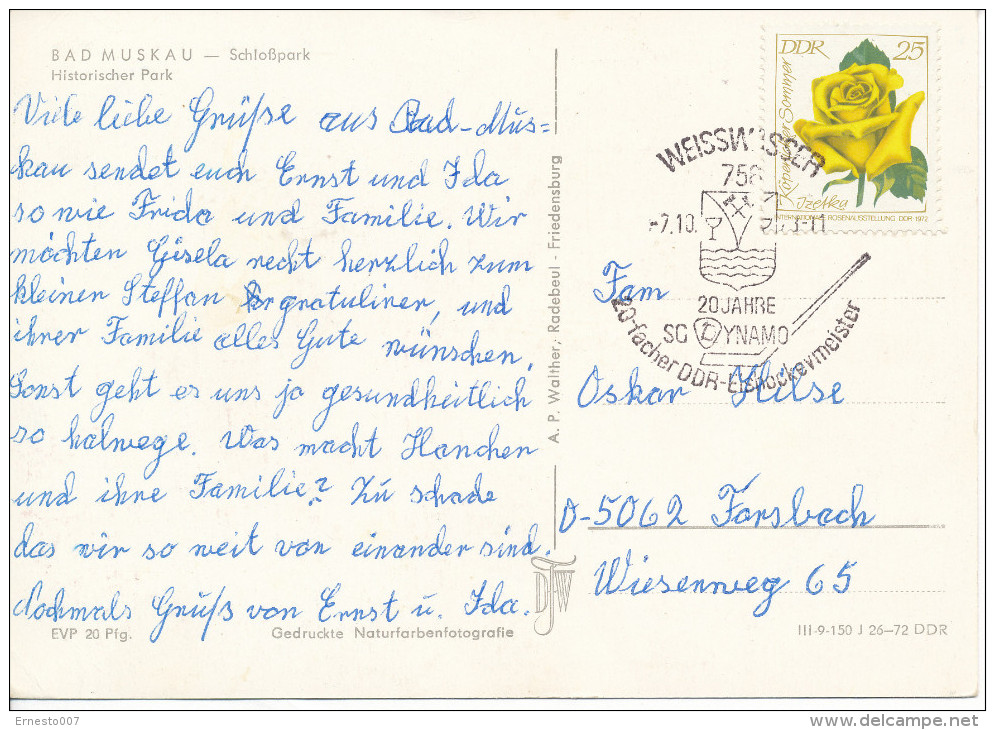 BAD MUSKAU — Schloßpark
Historischer Park
Viele liebe Grüße aus Bad-Mus=
kau sendet euch Ernst und Ida
sowie Frida und Familie. Wir
möchten Gisela recht herzlich zum
kleinen Steffan gratuliner, und
ihrer Familie alles Gute wünschen,
Sonst geht es uns ja gesundheitlich
so halwege. Was macht Hanchen
und ihre Familie? Zu schade
das wir so weit von einander sind.
Nochmals Gruß von Ernst u. Ida.
EVP 20 Pfg.
Gedruckte Naturfarbenfotografie
A. P. Walther, Radebeul - Friedensburg
DDR 25
Köpenicker Sommer
Izetka
INTERNATIONALE ROSENAUSSTELLUNG DDR 1972
WEISSWASSER
758
-7.10.
20 JAHRE
SG DYNAMO
20-facher DDR-Eishockeymeister
Fam
Oskar Hilse
D-5062 Forsbach
Wiesenweg 65
III-9-150 J 26–72 DDR
Ernesto007
delcampe.net